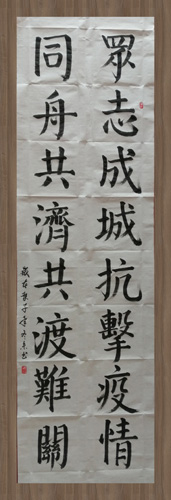 眾志成城抗擊疫情
同舟共濟共渡難關